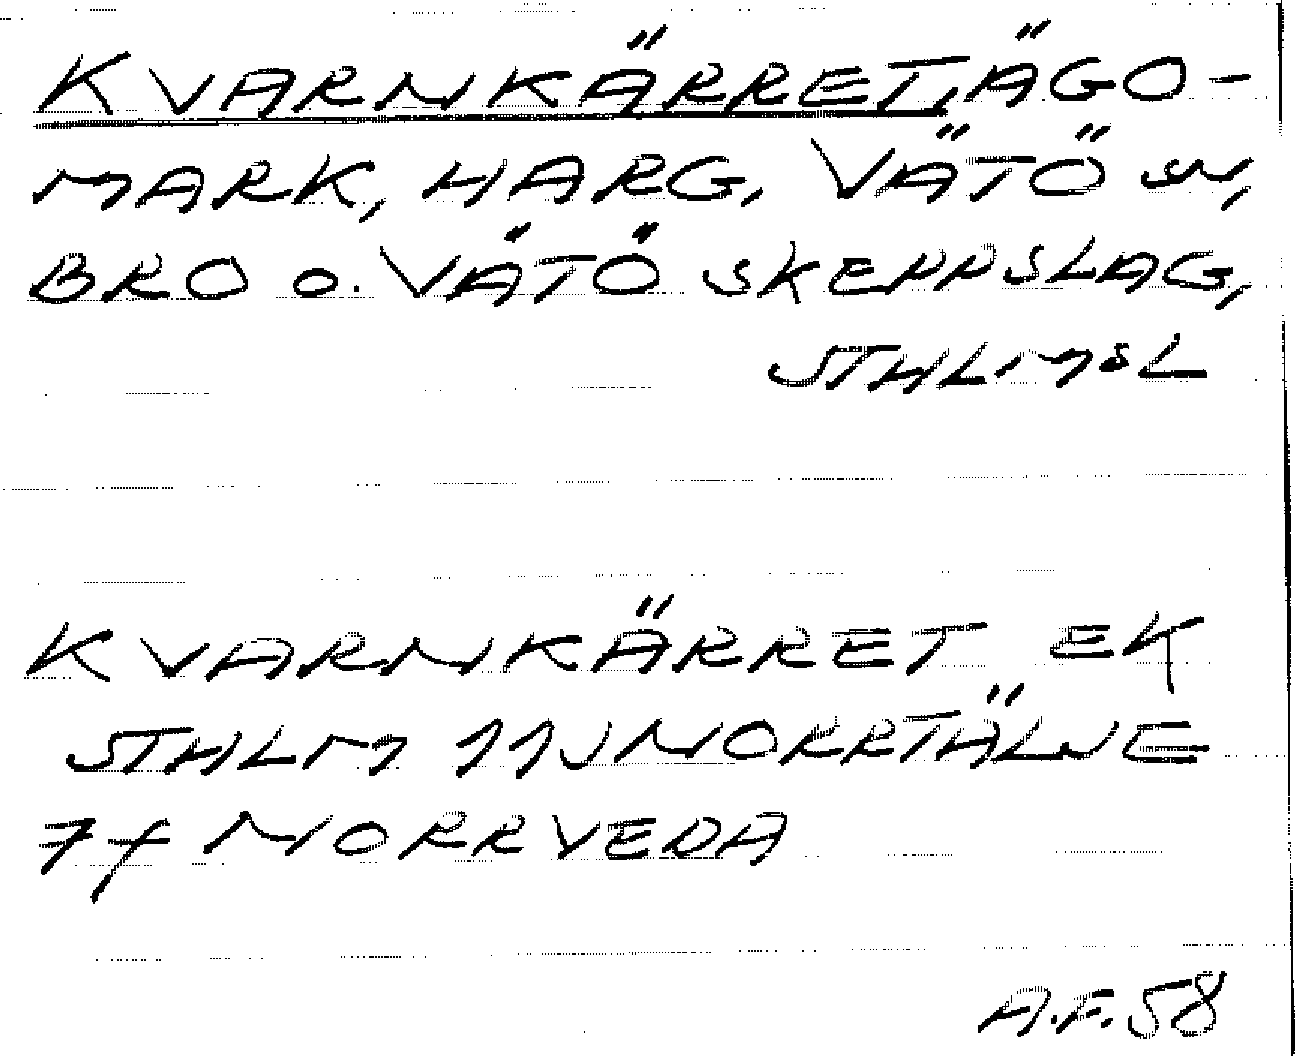 KVARNKÄRRET, ÄGO-
MARK, HARG, VÄTÖ SN,
BRO O. VÄTÖ SKEPPSLAG,
STHLMSL
KVARNKÄRRET EK
STHLM 11J NORRTÄLJE
7f NORRVEDA
A.F. 58